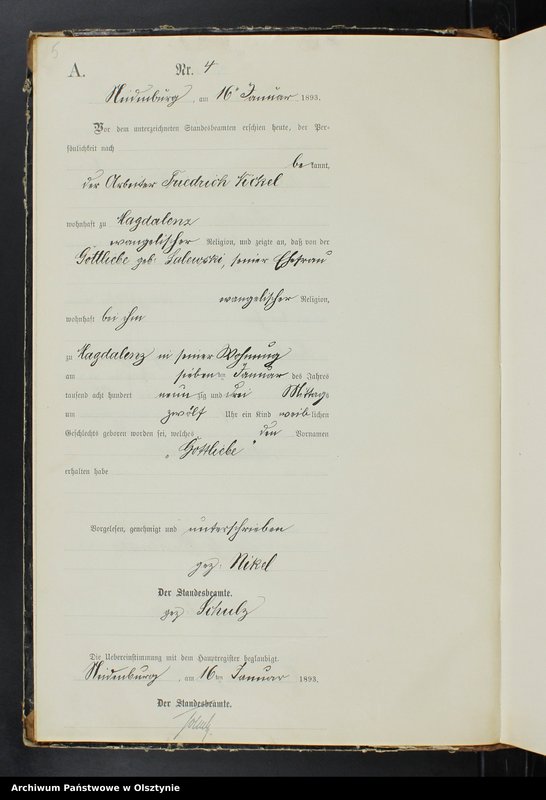 5
A.
Nr. 4
Neidenburg, am 16ten Januar 1893.
Vor dem unterzeichneten Standesbeamten erschien heute, der Per-
sönlichkeit nach
bekannt,
der Arbeiter Friedrich Nickel
wohnhaft zu Magdalenz
evangelischer Religion, und zeigte an, daß von der
Gottliebe geb. Salewski, seiner Ehefrau
evangelischer Religion,
wohnhaft bei ihm
zu Magdalenz in seiner Wohnung
am siebenten Januar des Jahres
tausend acht hundert neunzig und drei Mittags
um zwölf Uhr ein Kind weiblichen
Geschlechts geboren worden sei, welches den Vornamen
„Gottliebe“
erhalten habe
Vorgelesen, genehmigt und unterschrieben
gez. Nikel
Der Standesbeamte.
gez. Schulz
Die Uebereinstimmung mit dem Hauptregister beglaubigt.
Neidenburg, am 16ten Januar 1893.
Der Standesbeamte.
Archiwum Państwowe w Olsztynie